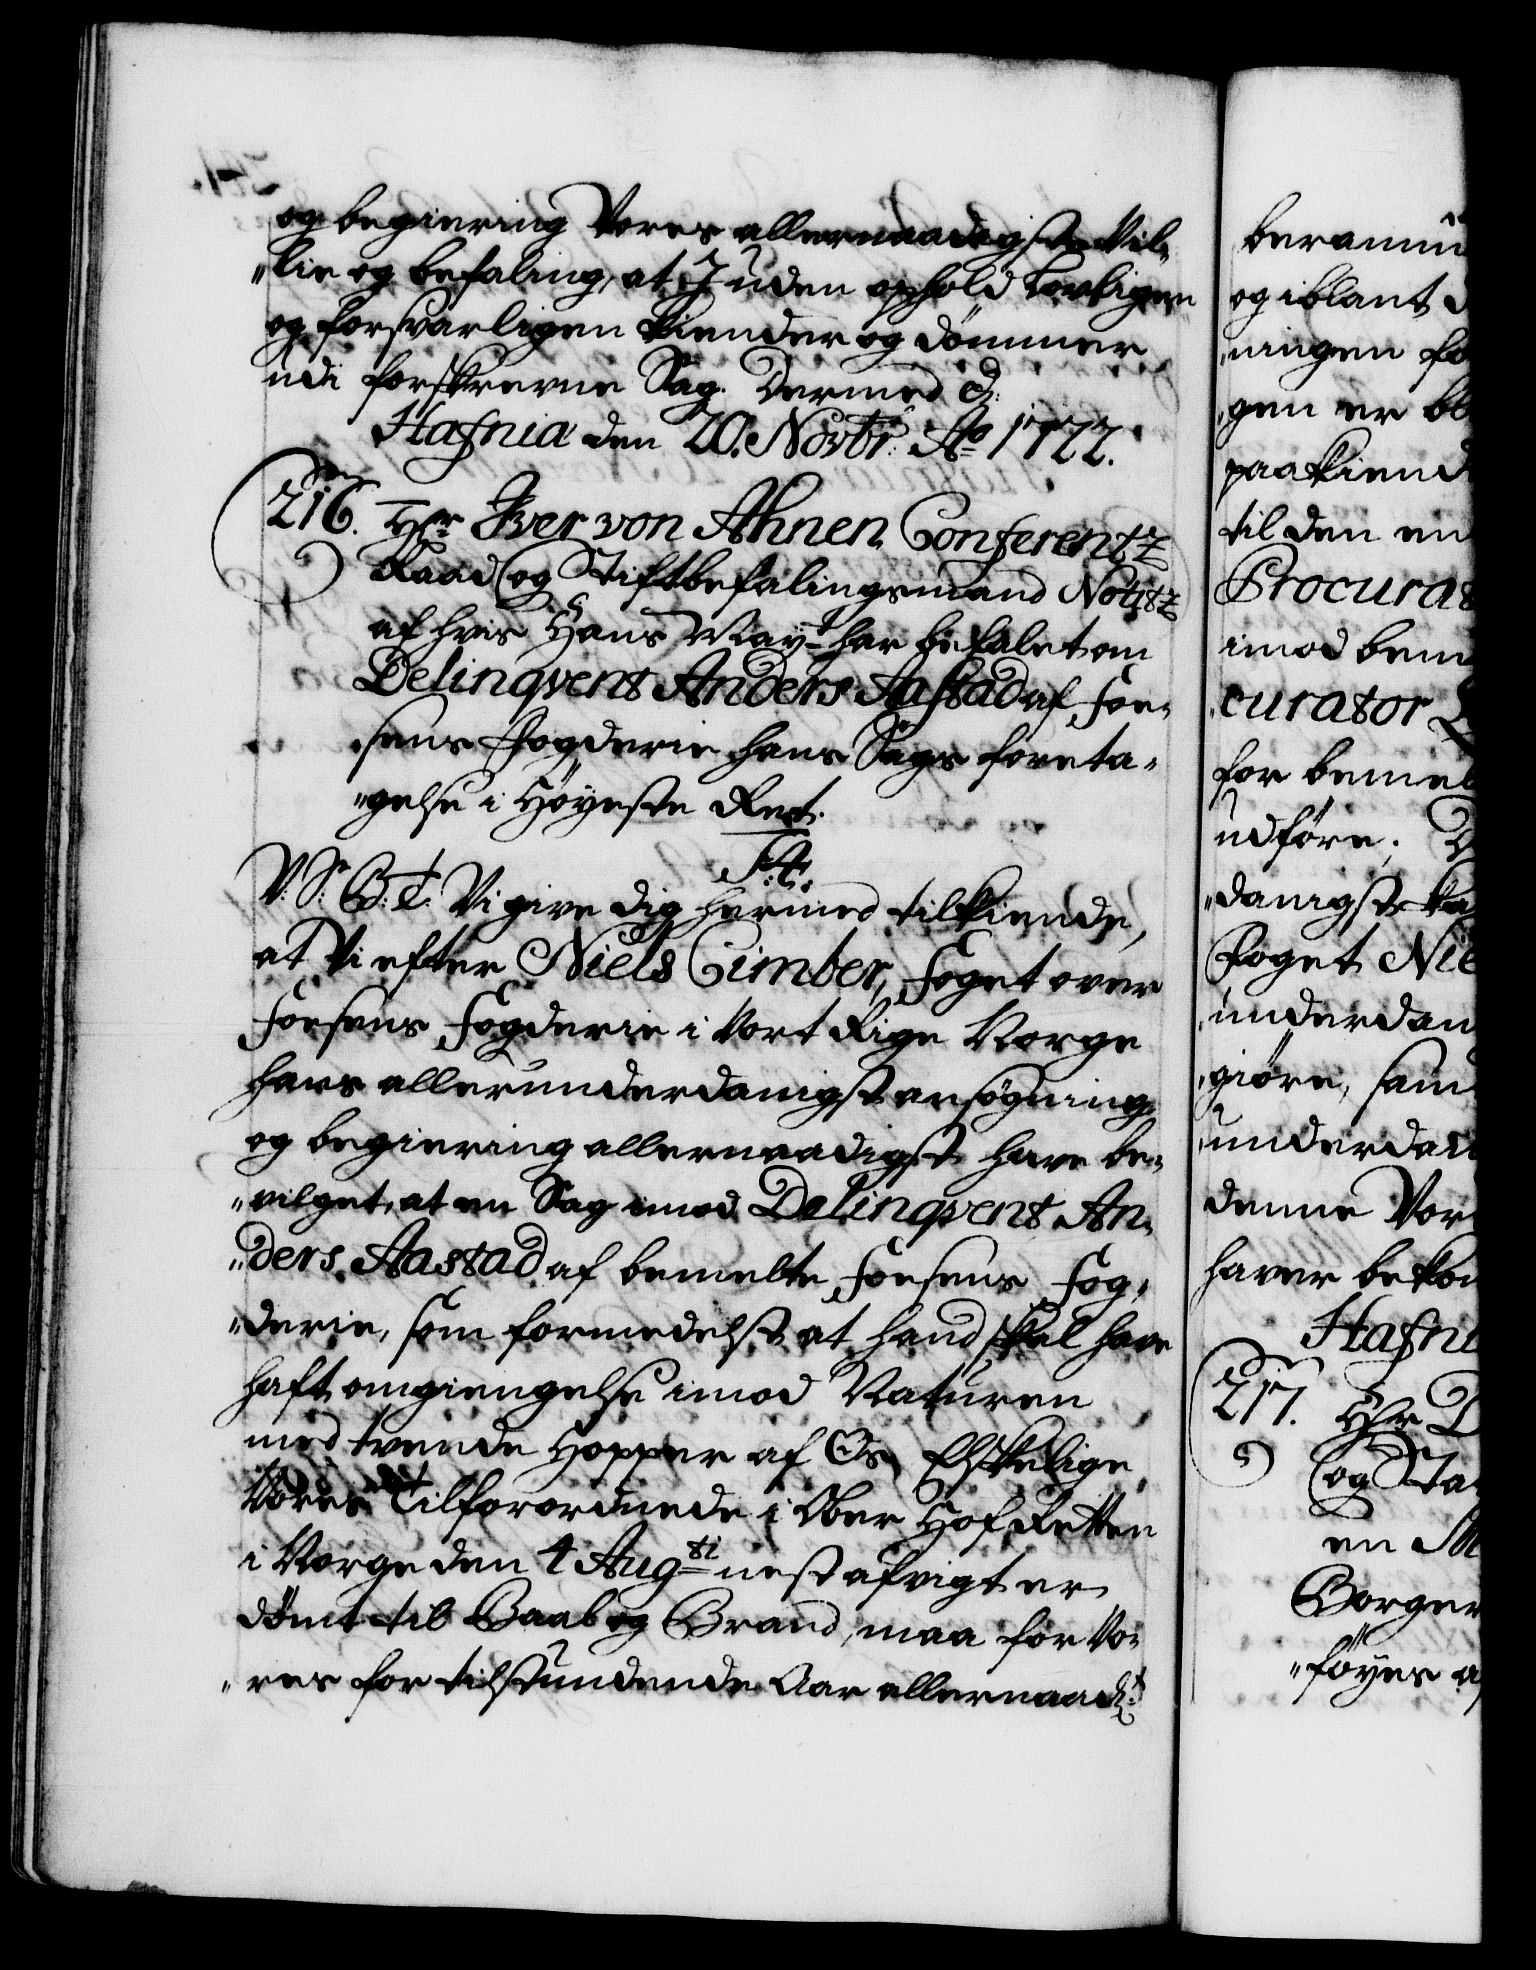 og begiering Vores allernaadigste Vil-
"lie og befaling, at I uden ophold lovligen
og forsvarligen kiender og dömmer
udi forskrevne Sag. Dermed &:
Hafnia den 20. Novbr: Ao 1722.
216. Hr Iver von Ahnen Conferentz
Raad og Stiftbefalingsmand Notitz
af hvis Hans Mayt har befalet om
Delinqvent Anders Aastad af Foe-
sens Fogderie hans Sags foreta-
"gelse i Höyeste Ret.
F: 4.
V: S: G: T. Vi give dig hermed tilkiende,
at Vi efter Niels Cimber, Foget over
Foesens Fogderie i Vort Rige Norge
hans allerunderdanigst ansögning
og begiering allernaadigst have be-
"vilget, at en Sag imod Delinqvent An-
"ders Aastad af bemelte Foesens Fog-
"derie, som formedelst at hand skal have
haft omgiengelse imod Naturen
med tvende Hopper af Os Elskelige
Vores Tilforordnede i Ober Hof Retten
i Norge den 4 Augsti nest afvigt er
dömt til Baal og Brand, maa for Vo-
"res for tilstundende Aar allernaadt
beramm
og iblant d
"ningen fo
"gen er bl
paakiend
til den en
Procurat
imod bem
"curator
for bemel
udföre;
"danigst ka
Foget Nie
"underdan
"giöre, sam
"underdan
denne Vor
haver bekom
Hafni
217. Hr D
og Sta
en M
Borger
"föyes a